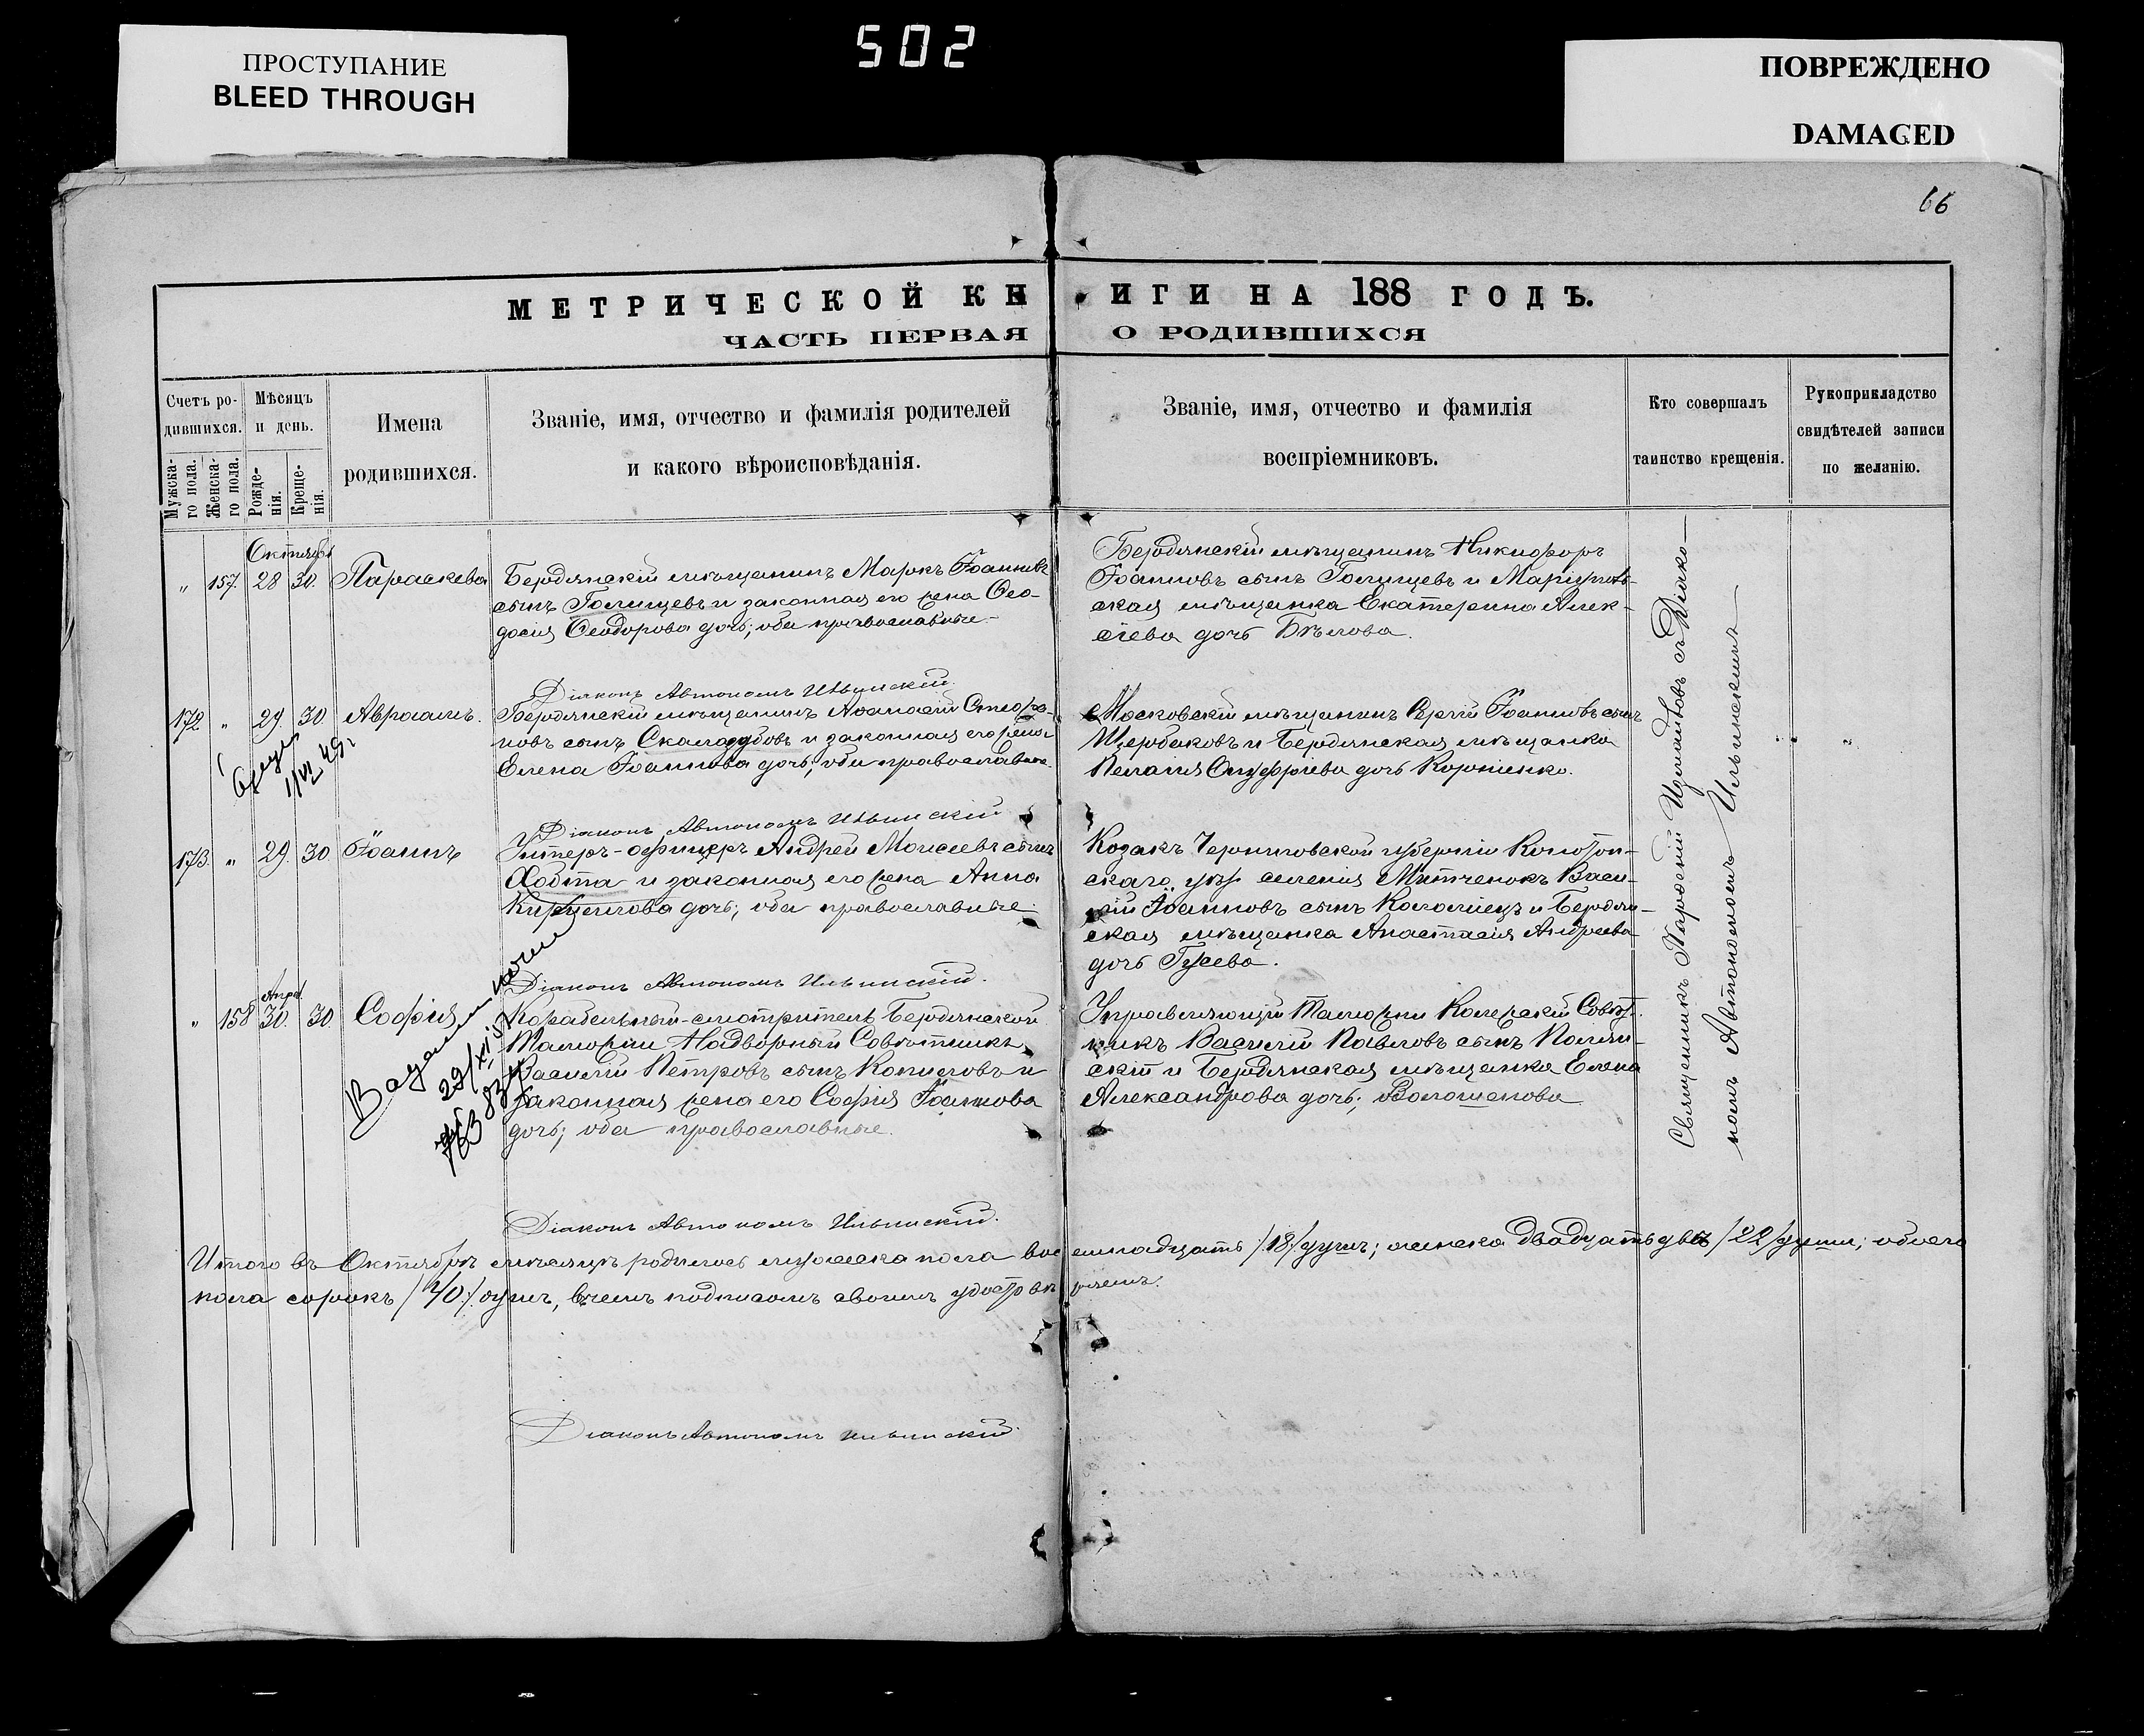 ПРОСТУПАНИЕ
BLEED THROUGH
502
ПОВРЕЖДЕНО
DAMAGED
66
МЕТРИЧЕСКОЙ КНИГИ НА 188 ГОДЪ.
ЧАСТЬ ПЕРВАЯ О РОДИВШИХСЯ
Счетъ ро-
дившихся.
Мужска-
го пола.
Женска-
го пола.
Мѣсяцъ
и день.
Рожде-
нія.
Креще-
нія.
Имена
родившихся.
Званіе, имя, отчество и фамилія родителей
и какого вѣроисповѣданія.
Званіе, имя, отчество и фамилія
воспріемниковъ.
Кто совершалъ
таинство крещенія.
Рукоприкладство
свидѣтелей записи
по желанію.
Октябрь
" 157. 28 30. Параскева
Бердянскій мѣщанинъ Маркъ Іоанновъ
сынъ Голищевъ и законная его жена Ѳео-
досія Ѳеодорова дочь; оба православные.
Бердянскій мѣщанинъ Никифоръ
Іоанновъ сынъ Голищевъ и Маріуполь-
ская мѣщанка Екатерина Алек-
сіева дочь Бѣлова.
Діаконъ Автономъ Ильинскій.
172 " 29 30 Авраамъ.
Бердянскій мѣщанинъ Аѳанасій Стефа-
новъ сынъ Скалозубовъ и законная его жена
Елена Іоаннова дочь; оба православные.
Московскій мѣщанинъ Сергій Іоанновъ сынъ
Щербаковъ и Бердянская мѣщанка
Пелагія Онуфріева дочь Короненко.
1/VI 49 г
Діаконъ Автономъ Ильинскій
173. " 29. 30 Іоаннъ
Унтеръ-офицеръ Андрей Моисеевъ сынъ
Хобта и законная его жена Анна
Кириллова дочь; оба православные.
Козакъ Черниговской губерніи Конотоп-
скаго уѣз. селенія Митченокъ Васи-
лій Іоанновъ сынъ Коломіецъ и Бердян-
ская мѣщанка Анастасія Андреева
дочь Гусева.
Діаконъ Автономъ Ильинскій.
" 158 30. 30. Софія
Корабельный смотритель Бердянской
Таможни Надворный Совѣтникъ
Василій Петровъ сынъ Копыловъ и
законная жена его Софія Іоаннова
дочь; оба православные.
Управляющій Таможни Колежскій Совѣт-
никъ Василій Павловъ сынъ Полян-
скій и Бердянская мѣщанка Елена
Александрова дочь; Волошенова
29/XI
Священникъ Парѳеній Цѣликовъ съ Діако-
номъ Автономомъ Ильинскимъ
Діаконъ Автономъ Ильинскій.
Итого въ Октябрѣ мѣсяцѣ родилось мужеска пола восемнадцать /18/ душъ; женска двадцать двѣ /22/ души; обоего
пола сорокъ /40/ душъ, въ чемъ подписомъ своимъ удостовѣряемъ.
Діаконъ Автономъ Ильинскій